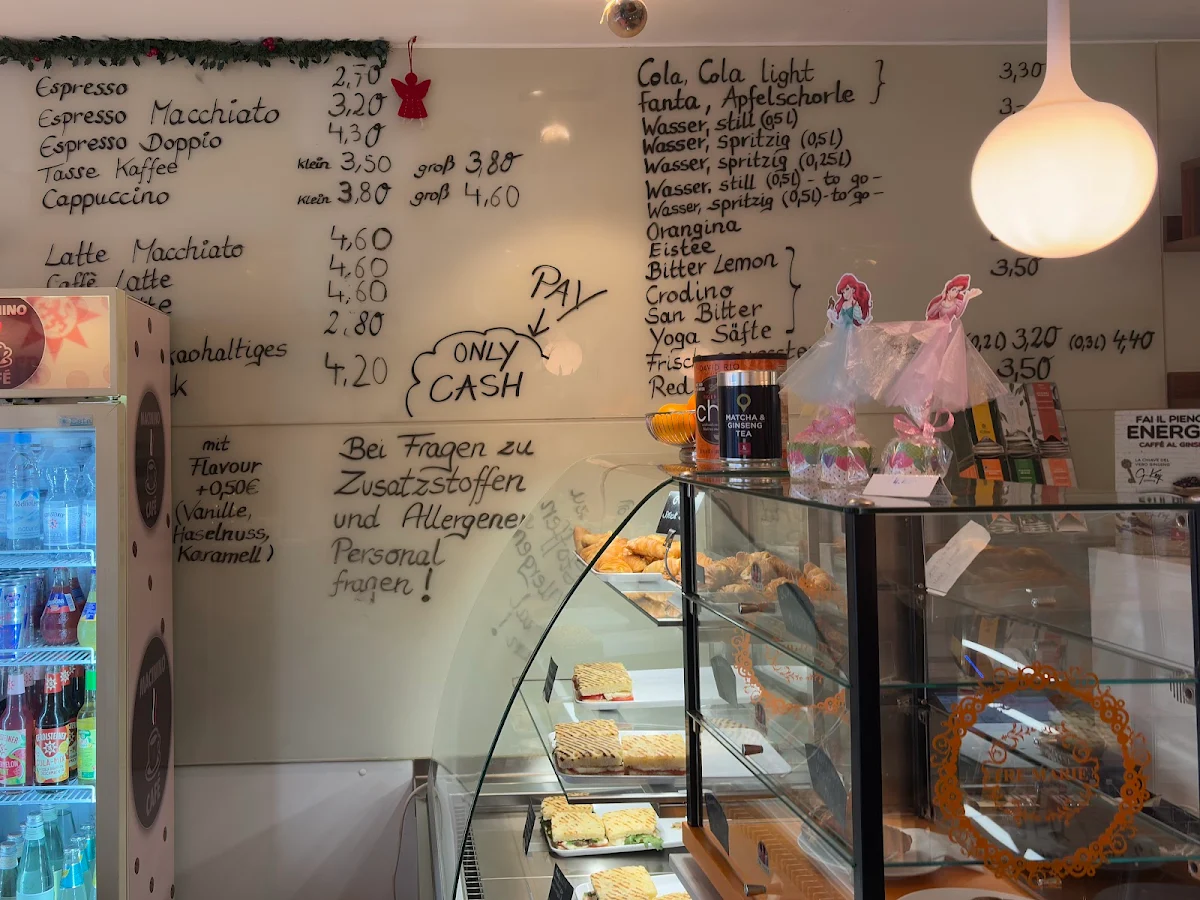 Espresso 2,70
Espresso Macchiato 3,20
Espresso Doppio 4,30
Tasse Kaffee klein 3,50 groß 3,80
Cappuccino klein 3,80 groß 4,60
Latte Macchiato 4,60
Caffè Latte 4,60
4,60
2,80
kaohaltiges
4,20
PAY
ONLY
CASH
mit
Flavour
+0,50€
(Vanille,
Haselnuss,
Karamell)
Bei Fragen zu
Zusatzstoffen
und Allergenen
Personal
fragen!
Cola, Cola light } 3,30
Fanta, Apfelschorle
Wasser, still (0,5l)
Wasser, spritzig (0,5l)
Wasser, spritzig (0,25l)
Wasser, still (0,5l) - to go -
Wasser, spritzig (0,5l) - to go -
Orangina
Eistee
Bitter Lemon 3,50
Crodino
San Bitter
Yoga Säfte
(0,2l) 3,20 (0,3l) 4,40
Red 3,50
MATCHA &
GINSENG
TEA
FAI IL PIENO
ENERG
CAFFÈ AL GINS
CAFÉ